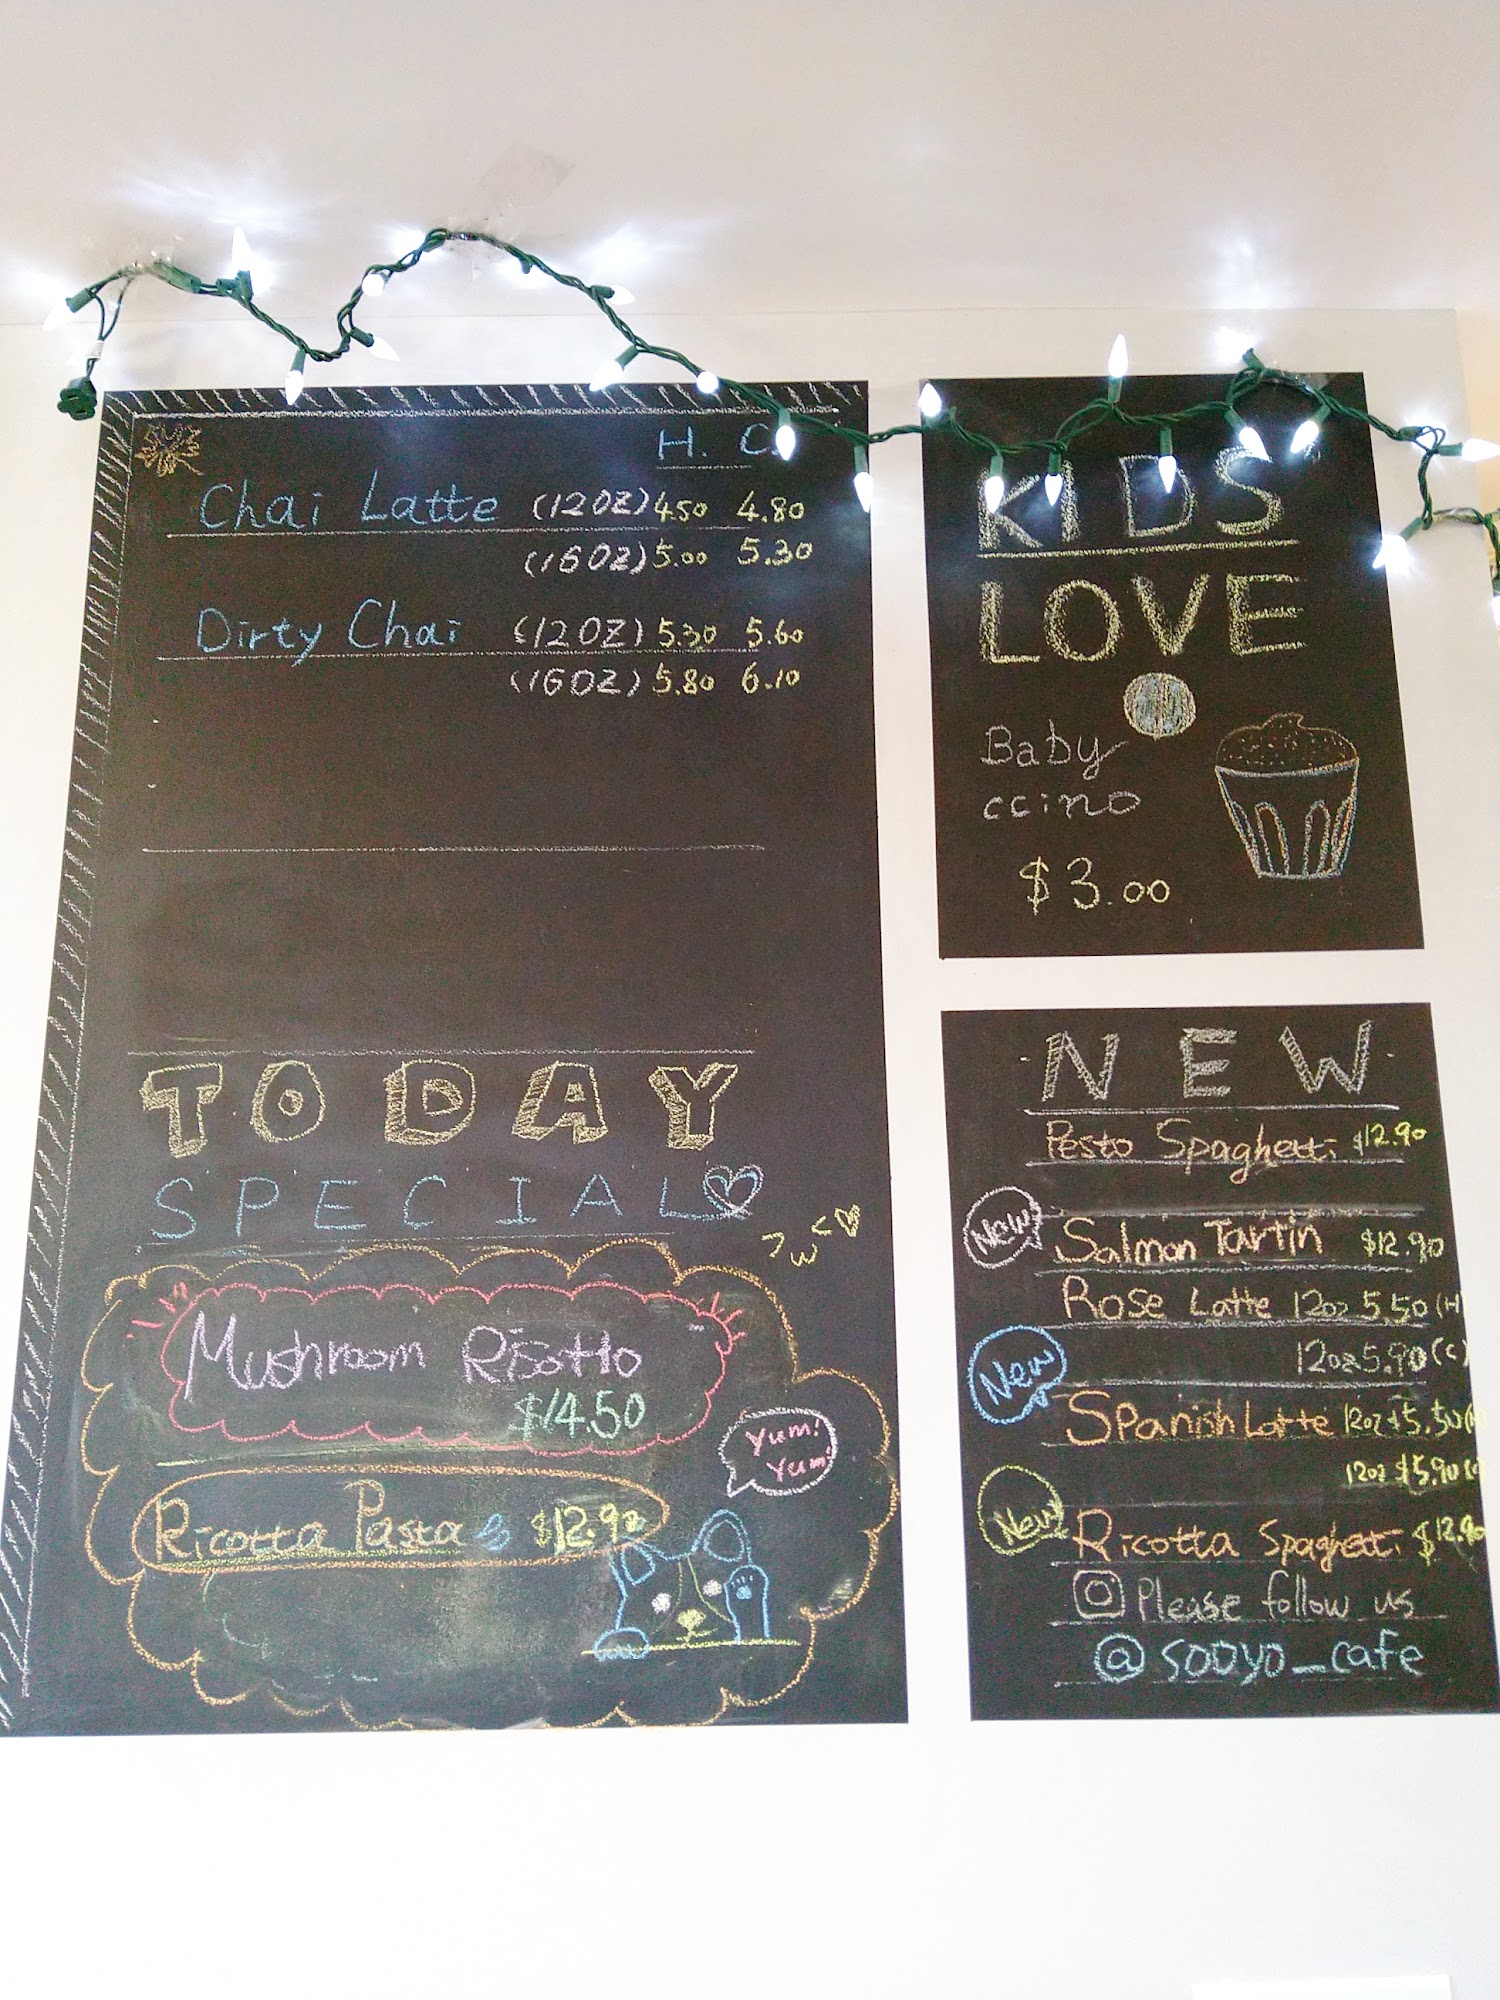 H. C.
Chai Latte (12OZ) 4.50 4.80
(16OZ) 5.00 5.30
Dirty Chai (12OZ) 5.30 5.60
(16OZ) 5.80 6.10
TODAY
SPECIAL
Mushroom Risotto
$14.50
Yum!
Yum!
Ricotta Pasta $12.90
KIDS
LOVE
Baby
ccino
$3.00
NEW
Pesto Spaghetti $12.90
New!
Salmon Tartin $12.90
Rose Latte 12oz 5.50 (H)
12oz 5.90 (C)
New
Spanish Latte 12oz $5.50 (H
12oz $5.90 (C
New
Ricotta Spaghetti $12.90
Please follow us
@sooyo_cafe